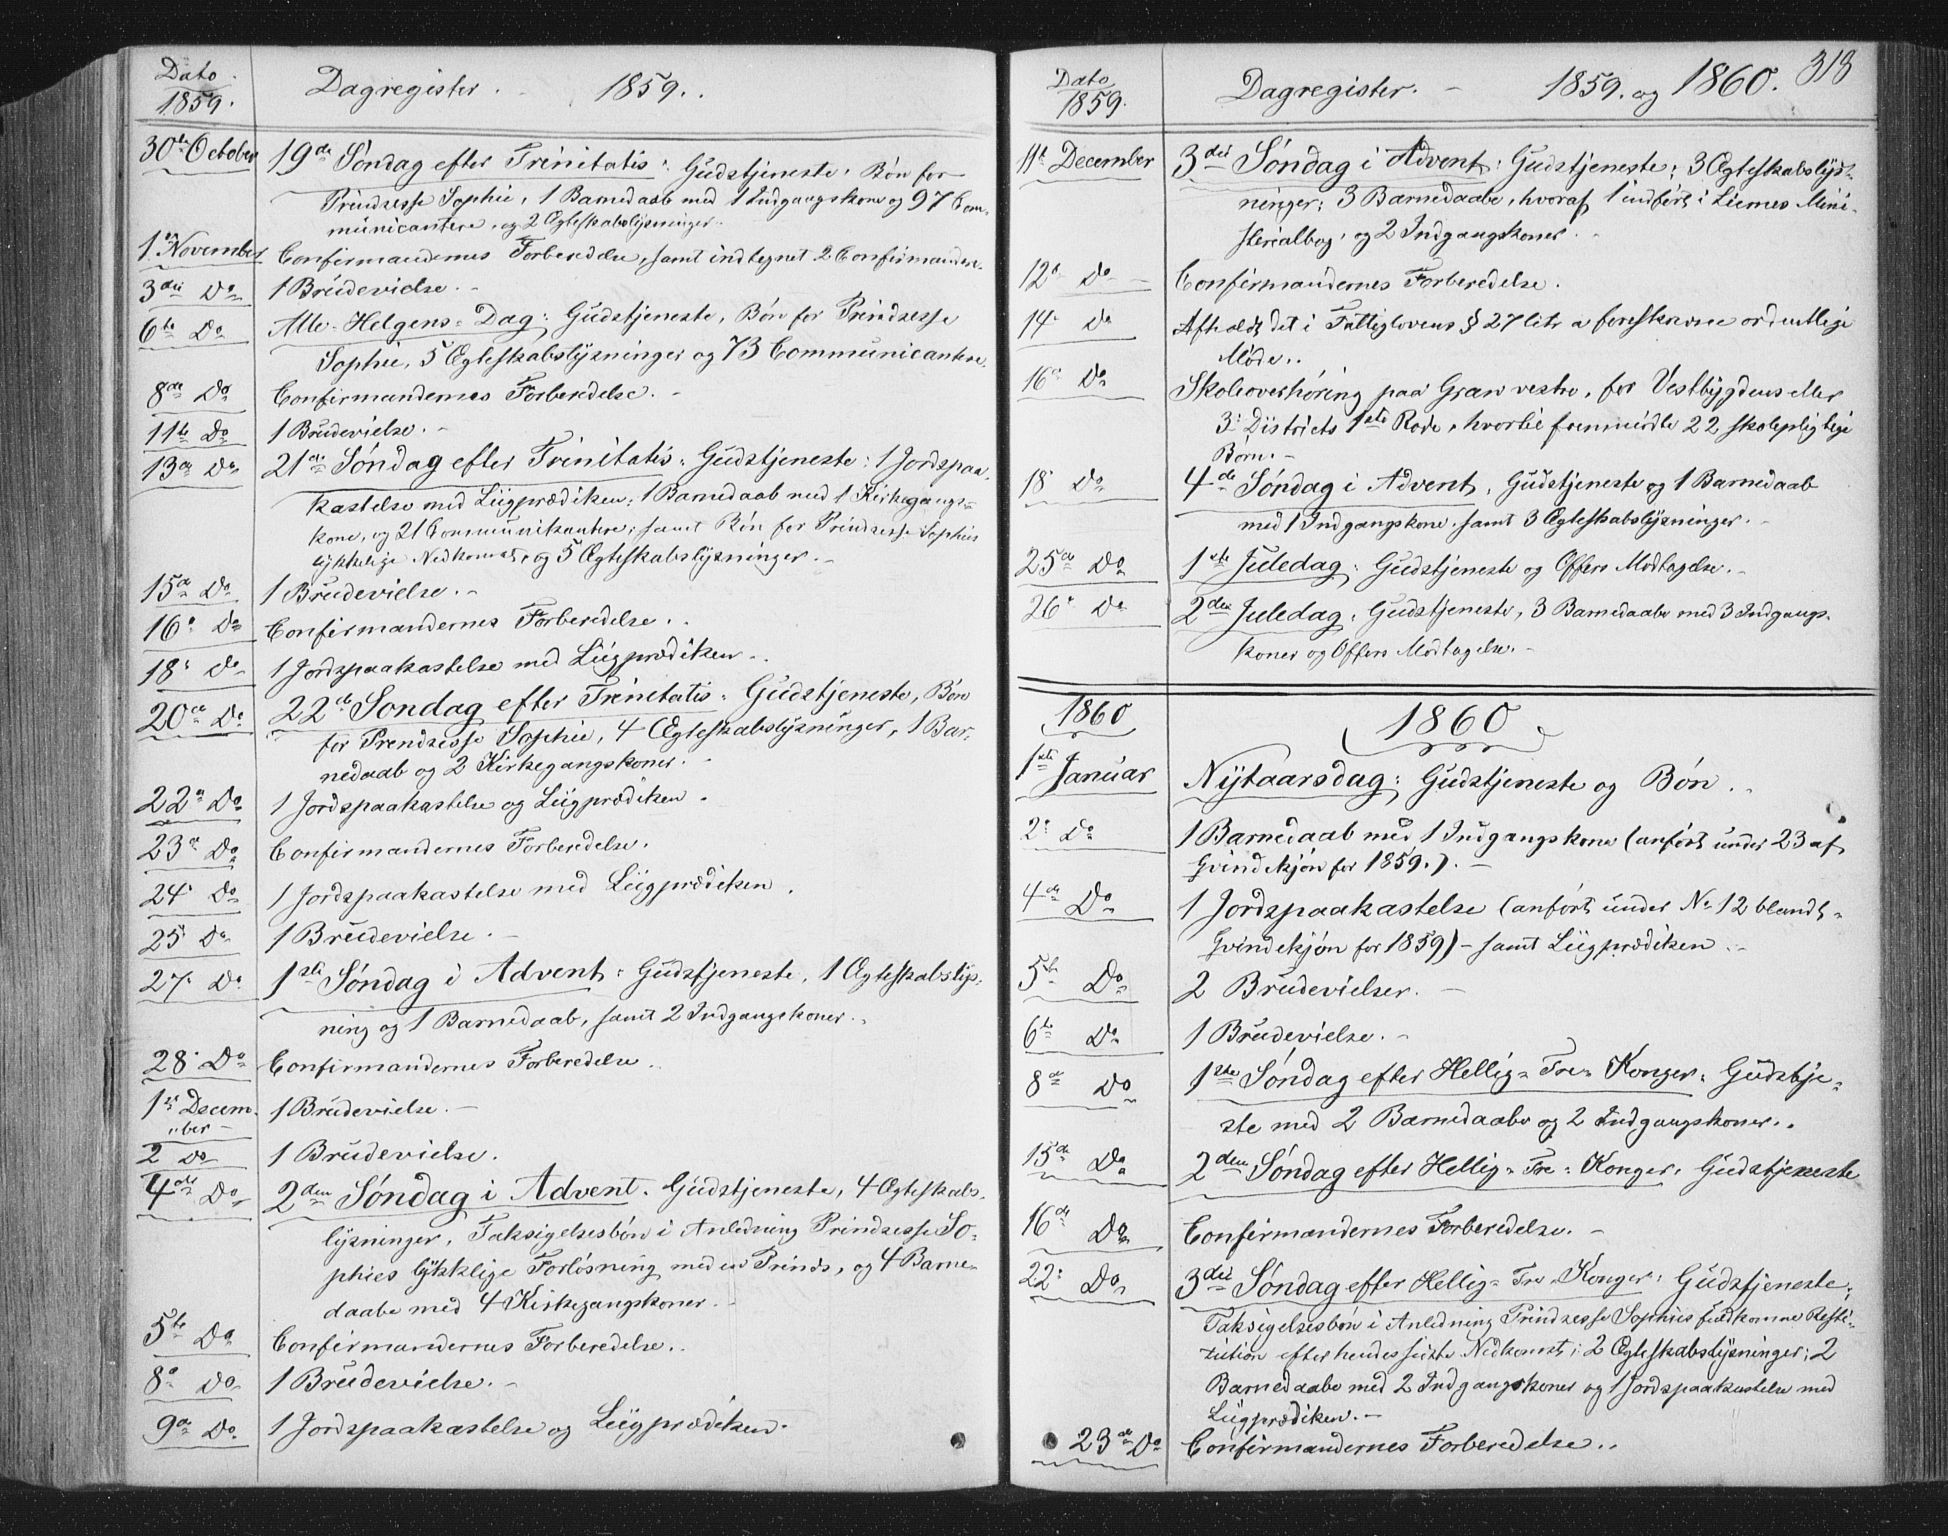 Dato
1859.
Dagregister. 1859.
30te October 19de Søndag efter Trinitatis: Gudstjeneste. Bøn for
Prindsesse Sophie, 1 Barnedaab med 1 Indgangskone og 97 Com-
municantere, og 2 Ægteskabslysninger.
1. November Confirmandernes Forberedelse, samt indtegnet 2 Confirmander.
3die Do 1 Brudevielse.
6te Do Alle-Helgens-Dag: Gudstjeneste, Bøn for Prindsesse
Sophie, 5 Ægteskabslysninger og 73 Communicantere.
8de Do Confirmandernes Forberedelse.
11te Do 1 Brudevielse.
13de Do 21de Søndag efter Trinitatis: Gudstjeneste: 1 Jordspaa-
kastelse med Liigprædiken; 1 Barnedaab med 1 Kirkegangs-
kone, og 21 Communikantere; samt Bøn for Prindsesse Sophies
lykkelige Nedkomst, og 5 Ægteskabslysninger.
15de Do 1 Brudevielse.
16de Do Confirmandernes Forberedelse.
18. Do 1 Jordspaakastelse med Liigprædiken.
20de Do 22de Søndag efter Trinitatis: Gudstjeneste, Bøn
for Prendsesse Sophie, 4 Ægteskabslysninger, 1 Bar-
nedaab og 2 Kirkegangskoner.
22de Do 1 Jordspaakastelse og Liigprædiken.
23de Do Confirmandernes Forberedelse.
24. Do 1 Jordspaakastelse med Liigprædiken.
25. Do 1 Brudevielse.
27. Do 1ste Søndag i Advent: Gudstjeneste, 1 Ægteskabslys-
ning og 1 Barnedaab, samt 2 Indgangskoner.
28. Do Confirmandernes Forberedelse.
1ste Decem- 1 Brudevielse.
"ber
2 Do 1 Brudevielse.
4de Do 2den Søndag i Advent. Gudstjeneste, 4 Ægteskabs-
lysninger, Taksigelsesbøn i Anledning Prindsesse So-
phies lykklige Forløsning med en Prinds, og 4 Barne-
daabe med 4 Kirkegangskoner.
5te Do Confirmandernes Forberedelse.
8de Do 1 Brudevielse.
9de Do 1 Jordspaakastelse og Liigprædiken.
318
Dato
1859.
Dagregister. 1859. og 1860.
11te December 3die Søndag i Advent: Gudstjeneste; 3 Ægteskabslys-
ninger; 3 Barnedaabe, hvoraf 1 indført i Liernes Mini-
sterialbog, og 2 Indgangskoner.
12te Do Confirmandernes Forberedelse.
14. Do Afholdt det i Fattiglovens § 27 litr a foreskrevne ordentlige
Møde.
16de Do Skoleoverhøring paa Gran vestre, for Vestbygdens eller
3. Districts 1ste Rode, hvortil fremmødte 22 skolepligtige
Børn.
18. Do 4de Søndag i Advent, Gudstjeneste og 1 Barnedaab
med 1 Indgangskone, samt 3 Ægteskabslysninger.
25de Do 1ste Juledag: Gudstjeneste og Offers Modtagelse.
26. Do 2den Juledag: Gudstjeneste, 3 Barnedaabe med 3 Indgangs-
koner og Offers Modtagelse.
1860 1860
1ste Januar Nytaarsdag: Gudstjeneste og Bøn.
2. Do 1 Barnedaab med 1 Indgangskone (anført under 23 af
Qvindekjøn for 1859.).
4de Do 1 Jordspaakastelse (anført under No 12 blandt
Qvindekjøn for 1859) - samt Liigprædiken.
5te Do 2 Brudevielser.
6te Do 1 Brudevielse.
8de Do 1ste Søndag efter Hellig-Tre-Konger: Gudstje-
ste med 2 Barnedaabe og 2 Indgangskoner.
15de Do 2den Søndag efter Hellig-Tre-Konger: Gudstjeneste
16de Do Confirmandernes Forberedelse.
22. Do 3die Søndag efter Hellig-Tre-Konger: Gudstjeneste;
Taksigelsesbøn i Anledning Prindsesse Sophies fuldkomne Resti-
tution efter hendes sidste Nedkomst; 2 Ægteskabslysninger; 2
Barnedaabe med 2 Indgangskoner og 1 Jordspaakastelse med
Liigprædiken.
23de Do Confirmandernes Forberedelse.